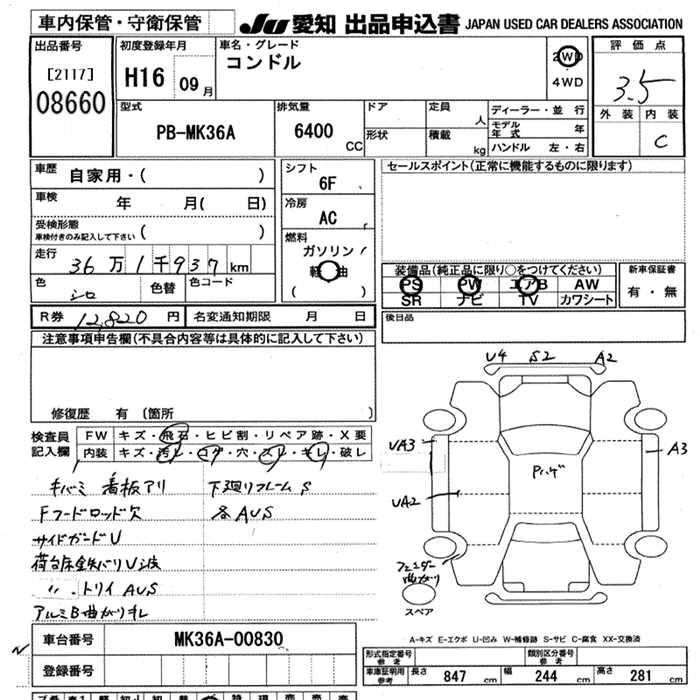 車内保管・守衛保管 JU 愛知 出品申込書 JAPAN USED CAR DEALERS ASSOCIATION
出品番号
[2117]
08660
初度登録年月
H16 09月
車名・グレード
コンドル
2WD
・
4WD
評価点
3.5
外装 内装
C
型式
PB-MK36A
排気量
6400 CC
ドア
形状
定員 人
積載 kg
ディーラー・並行
モデル年式 年
ハンドル 左・右
車歴
自家用・( )
車検
年 月( 日)
受検形態
車検付きのみ記入して下さい ( )
走行
36万1千937km
色
シロ
色替
色コード
シフト
6F
冷房
AC
燃料
ガソリン
軽油
( )
セールスポイント(正常に機能するものに限ります)
装備品(純正品に限り〇をつけてください)
PS PW エアB AW
SR ナビ TV カワシート
新車保証書
有・無
後日品
R券 12,820円 名変通知期限 月 日
注意事項申告欄(不具合内容等は具体的に記入して下さい)
修復歴 有(箇所 )
検査員
記入欄
FW キズ・飛石・ヒビ割・リペア跡・X要
内装 キズ・汚レ・コゲ・穴・スレ・キレ・破レ
キバミ 看板アリ 下廻りフレームS
Fフードロッド欠 各AUS
サイドガードU
荷台床鉄バリU波
〃.トリイAUS
アルミB曲がりキレ
U4 S2 A2
UA3
A3
UA2
Pハゲ
フェンダー
曲がり
スペア
A-キズ E-エクボ U-凹み W-補修跡 S-サビ C-腐食 XX-交換済
車台番号 MK36A-00830
登録番号
型式指定番号
参考
類別区分番号
参考
車庫証明用
参考
長さ 847 幅 244 高さ 281